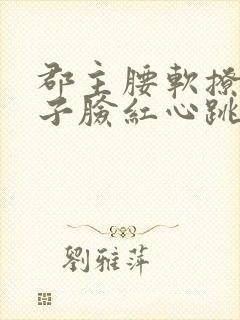 郡主腰軟撩
子臉紅心跳
劉雅萍